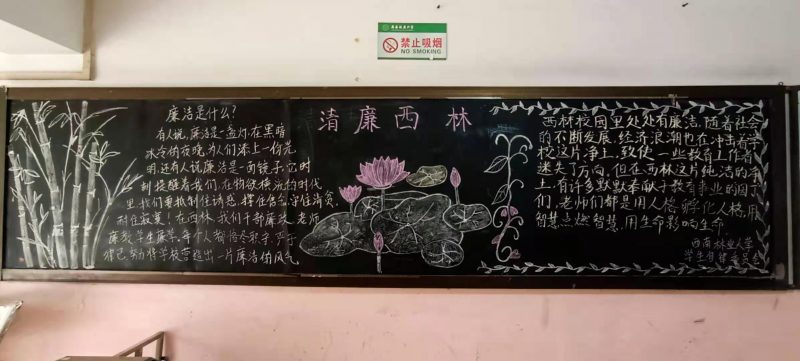 禁止吸烟
NO SMOKING
清廉西林
廉洁是什么?
有人说,廉洁是一盏灯,在黑暗
冰冷的夜晚,为人们添上一份光
明,还有人说廉洁是一面镜子,它时
刻提醒着我们,在物欲横流的时代
里,我们要抵制住诱惑,撑住信念,守住清贫,
耐住寂寞!在西林,我们干部廉政,老师
廉教,学生廉学,每个人都恪尽职守,严于
律己,努力将学校营造出一片廉洁的风气
西林校园里处处有廉洁,随着社会
的不断发展,经济浪潮也在冲击着学
校这片净土,致使一些教育工作者
迷失了方向,但在西林这片纯洁的净
土,有许多默默奉献于教育事业的园丁
们,老师们都是用人格孵化人格,用
智慧点燃智慧,用生命影响生命
西南林业大学
学生自管委员会